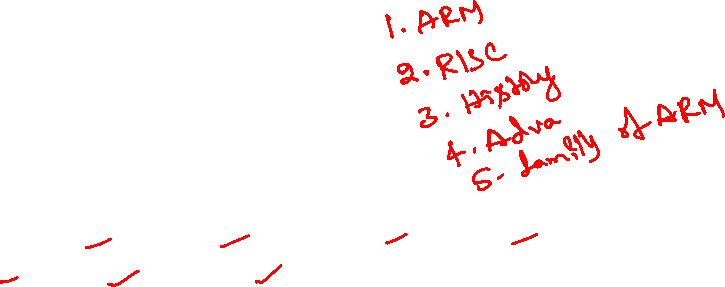 1. ARM
2. RISC
3. History
4. Adva
5. family of ARM